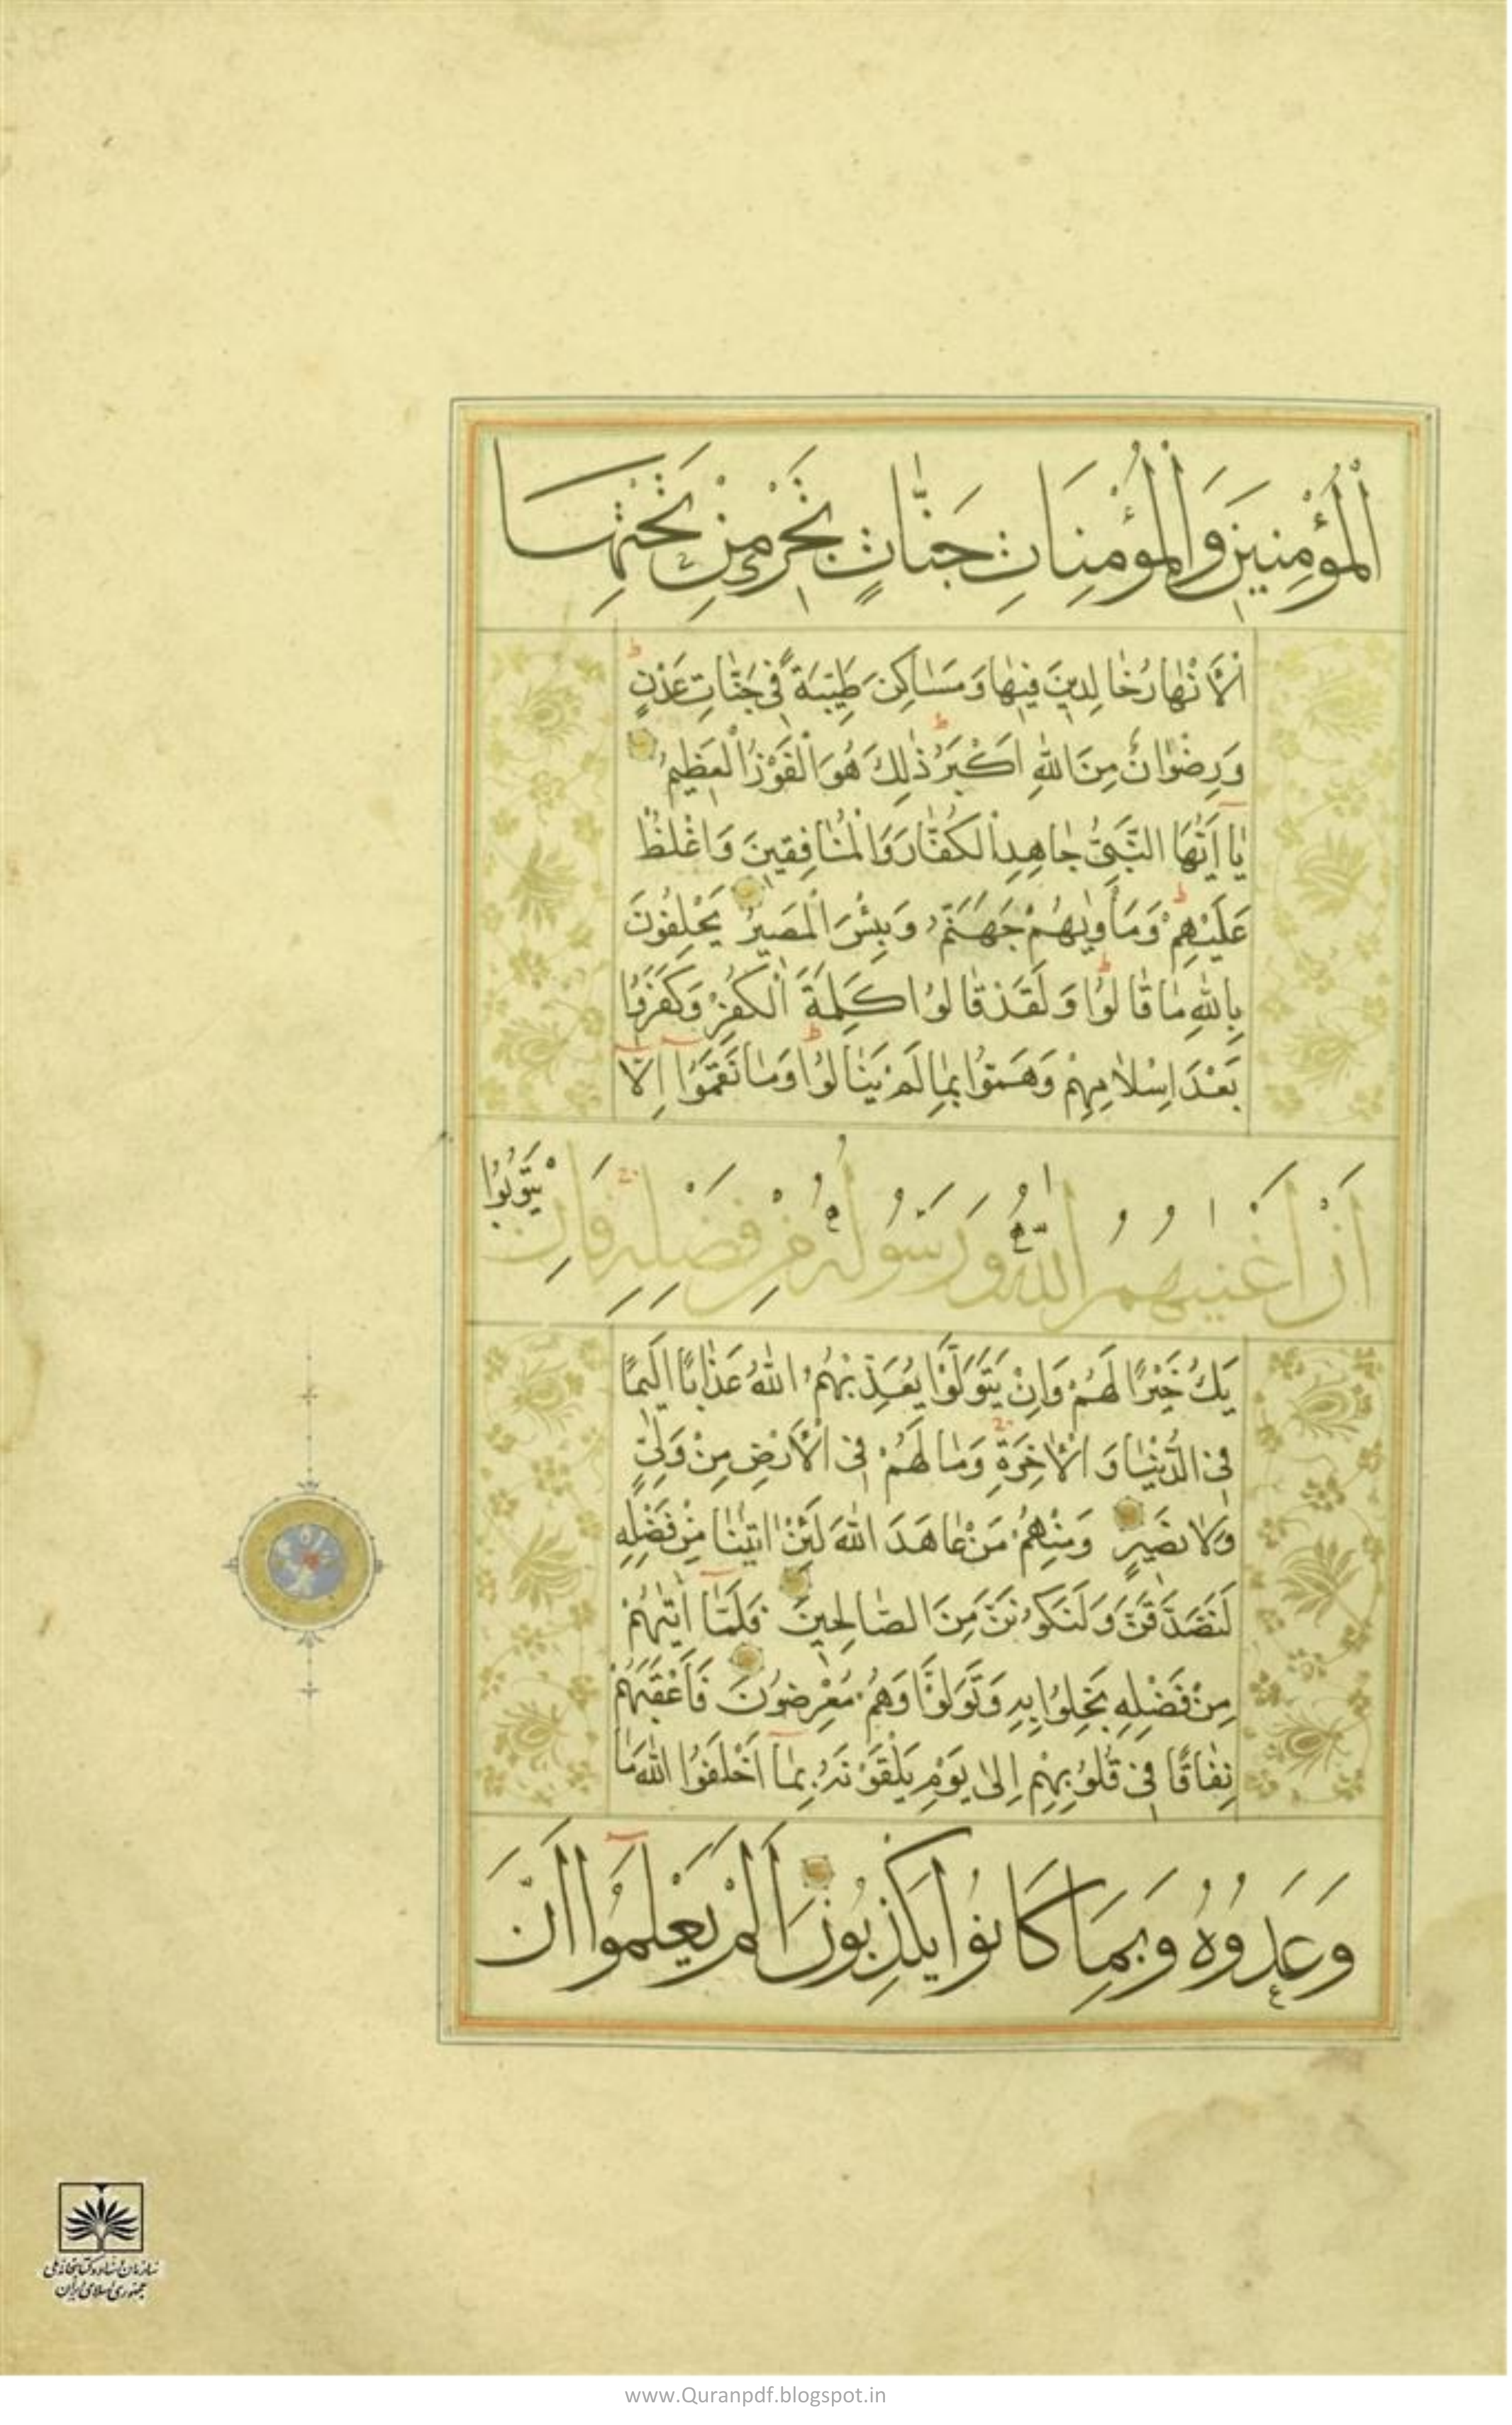 الْمُؤْمِنِينَ وَالْمُؤْمِنَاتِ جَنَّاتٍ تَجْرِي مِنْ تَحْتِهَا
الْأَنْهَارُ خَالِدِينَ فِيهَا وَمَسَاكِنَ طَيِّبَةً فِي جَنَّاتِ عَدْنٍ
وَرِضْوَانٌ مِنَ اللَّهِ اَكْبَرُ ذٰلِكَ هُوَ الْفَوْزُ الْعَظِيمُ
يَا اَيُّهَا النَّبِيُّ جَاهِدِ الْكُفَّارَ وَالْمُنَافِقِينَ وَاغْلُظْ
عَلَيْهِمْ وَمَأْوٰيهُمْ جَهَنَّمُ وَبِئْسَ الْمَصِيرُ يَحْلِفُونَ
بِاللَّهِ مَا قَالُوا وَلَقَدْ قَالُوا كَلِمَةَ الْكُفْرِ وَكَفَرُوا
بَعْدَ اِسْلَامِهِمْ وَهَمُّوا بِمَا لَمْ يَنَالُوا وَمَا نَقَمُوا اِلَّا
اَنْ اَغْنٰيهُمُ اللَّهُ وَرَسُولُهُ مِنْ فَضْلِهِ فَاِنْ يَتُوبُوا
يَكُ خَيْرًا لَهُمْ وَاِنْ يَتَوَلَّوْا يُعَذِّبْهُمُ اللَّهُ عَذَابًا اَلِيمًا
فِي الدُّنْيَا وَالْاٰخِرَةِ وَمَا لَهُمْ فِي الْأَرْضِ مِنْ وَلِيٍّ
وَلَا نَصِيرٍ وَمِنْهُمْ مَنْ عَاهَدَ اللَّهَ لَئِنْ اٰتٰينَا مِنْ فَضْلِهِ
لَنَصَّدَّقَنَّ وَلَنَكُونَنَّ مِنَ الصَّالِحِينَ فَلَمَّا اٰتٰيهُمْ
مِنْ فَضْلِهِ بَخِلُوا بِهِ وَتَوَلَّوْا وَهُمْ مُعْرِضُونَ فَاَعْقَبَهُمْ
نِفَاقًا فِي قُلُوبِهِمْ اِلٰى يَوْمِ يَلْقَوْنَهُ بِمَا اَخْلَفُوا اللَّهَ مَا
وَعَدُوهُ وَبِمَا كَانُوا يَكْذِبُونَ اَلَمْ يَعْلَمُوا اَنَّ
سازمان اسناد و کتابخانه ملی
جمهوری اسلامی ایران
www.Quranpdf.blogspot.in